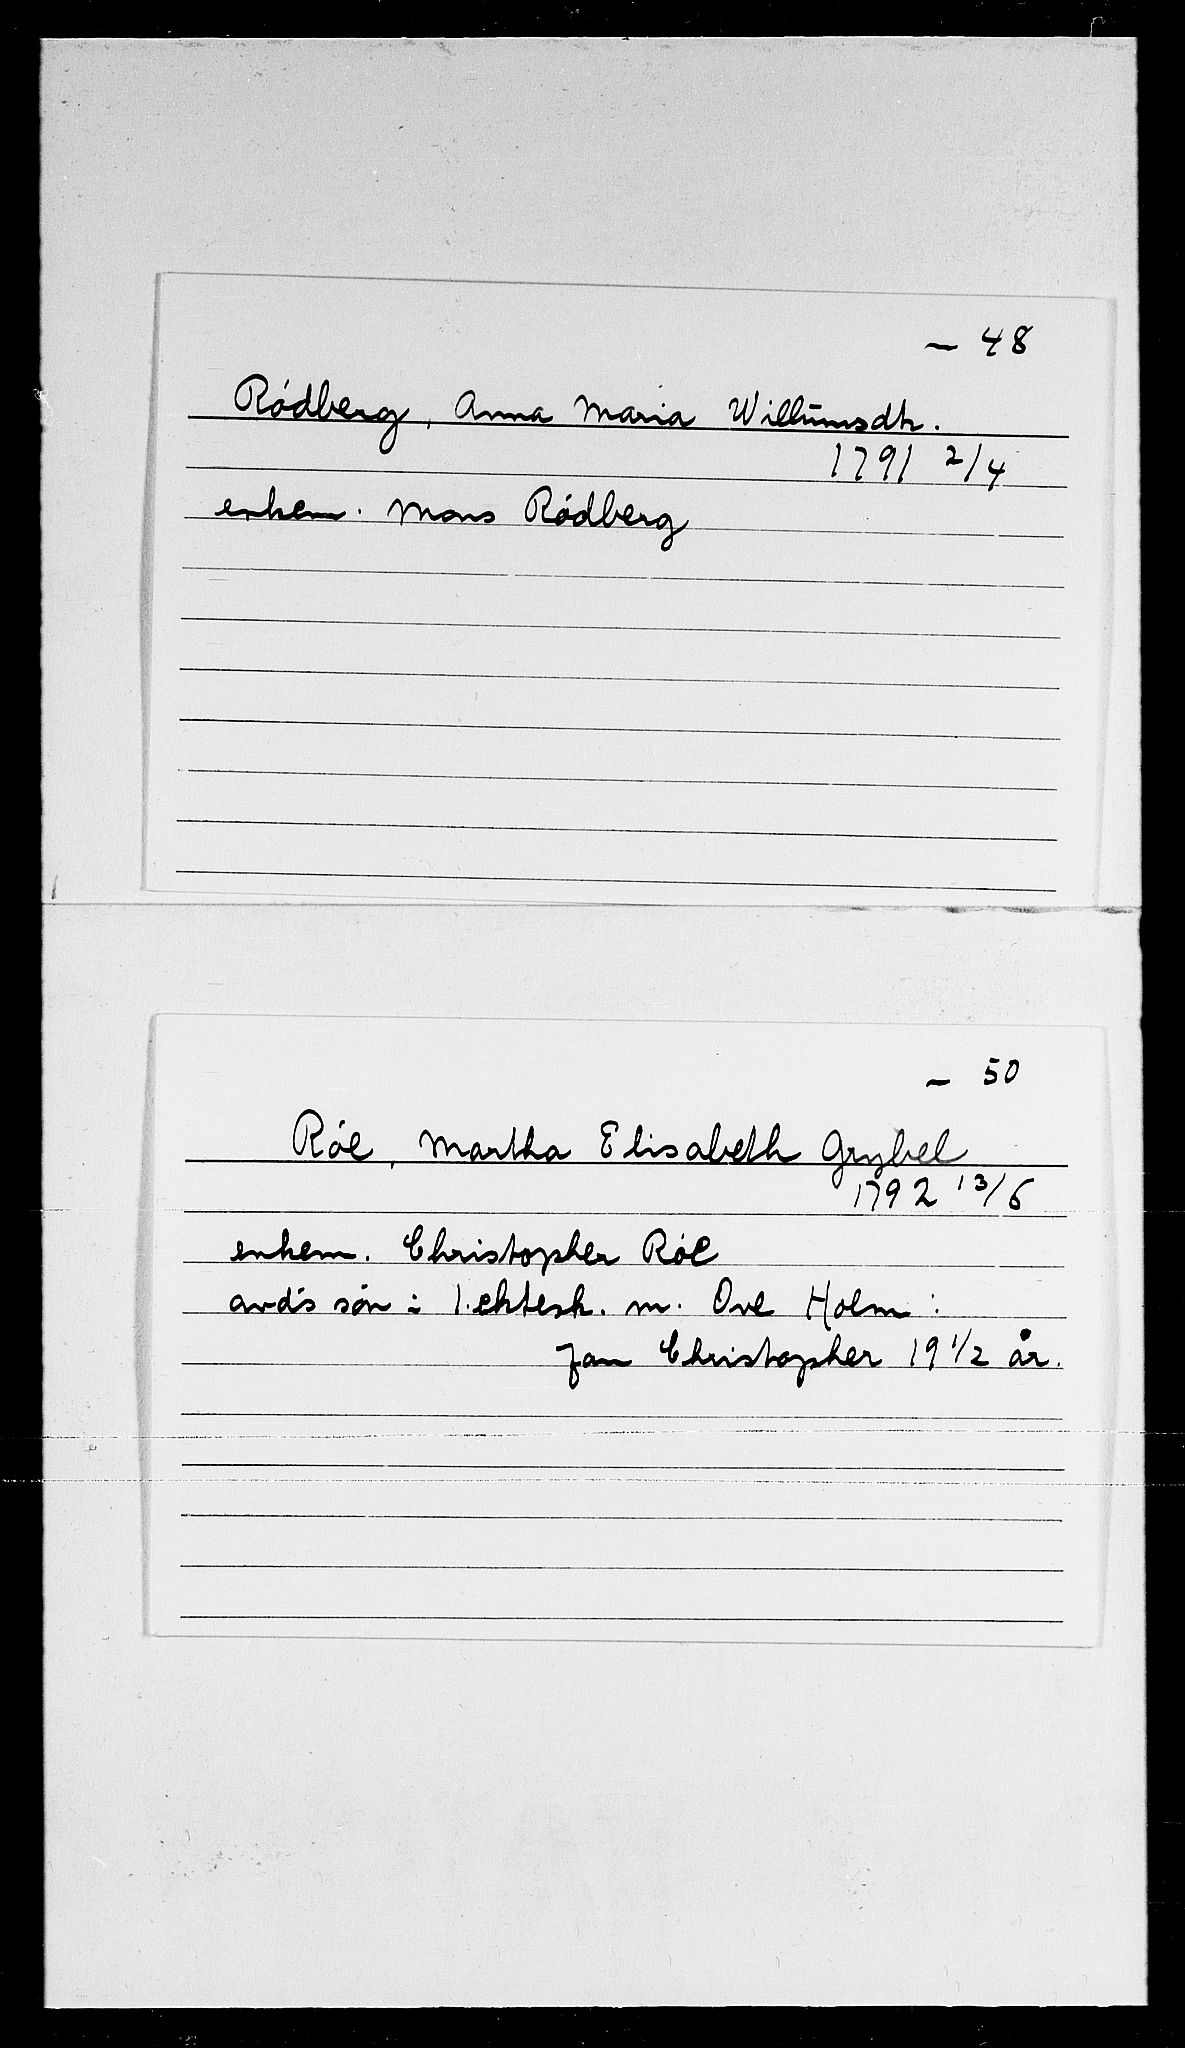 — 48
Ródberg, Anna Maria Willumsdtr.
1791 2/4
enkem. Mons Ródberg
— 50
Róe, Martha Elisabeth Grybel
1792 13/6
enkem. Christopher Róe
avdø's søn i 1.ektesk. m. Ove Holm:
Jan Christopher 19 1/2 år.